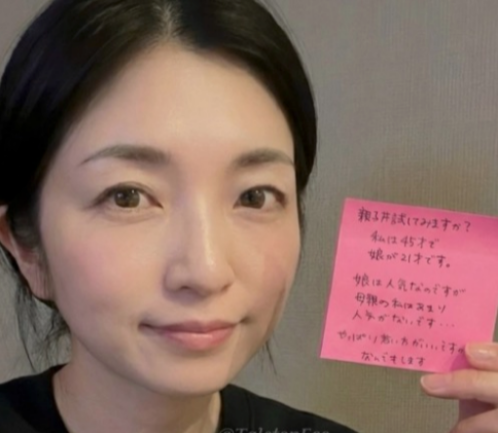 親子丼試してみますか?
私は45才で
娘が21才です。
娘は人気なのですが
母親の私はあまり
人気がないです...
やっぱり若い方がいいですか
なんでもします